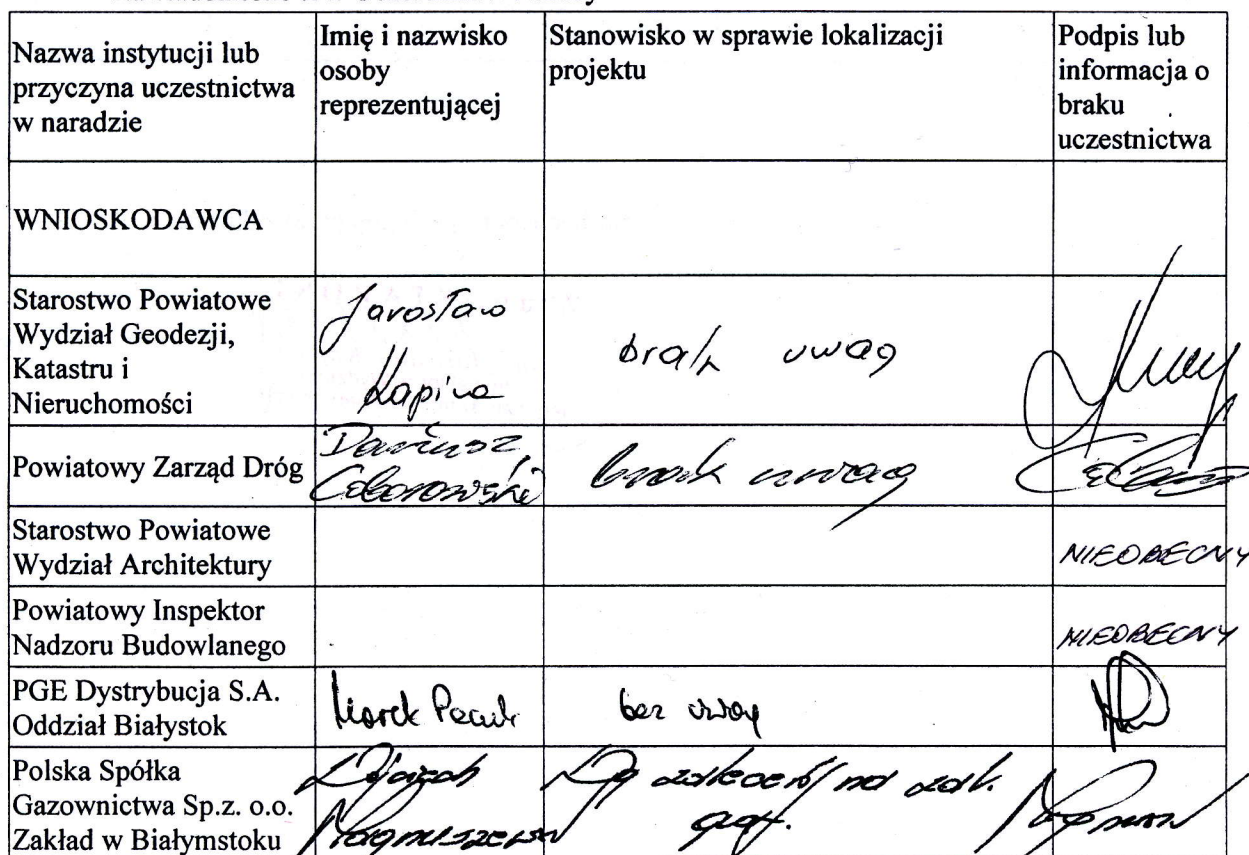 Nazwa instytucji lub
przyczyna uczestnictwa
w naradzie
Imię i nazwisko
osoby
reprezentującej
Stanowisko w sprawie lokalizacji
projektu
Podpis lub
informacja o
braku
uczestnictwa
WNIOSKODAWCA
Starostwo Powiatowe
Wydział Geodezji,
Katastru i
Nieruchomości
Jarosław
brak uwag
Powiatowy Zarząd Dróg
Dariusz
brak uwag
Starostwo Powiatowe
Wydział Architektury
NIEOBECNY
Powiatowy Inspektor
Nadzoru Budowlanego
NIEOBECNY
PGE Dystrybucja S.A.
Oddział Białystok
Marek
bez uwag
Polska Spółka
Gazownictwa Sp.z. o.o.
Zakład w Białymstoku
na zał.